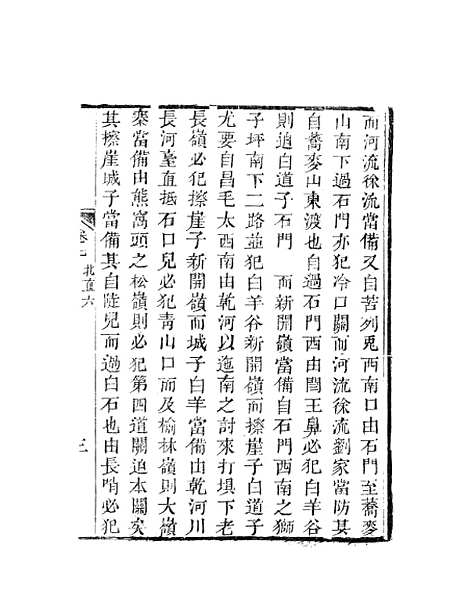 而河流徐流當備又自苦列兎西南口由石門至蕎麥
山南下過石門亦犯冷口關而河流徐流劉家當防其
自蕎麥山東渡也自過石門西由閻王鼻必犯白羊谷
則迫白道子石門　而新開嶺當備自石門西南之獅
子坪南下二路並犯白羊谷新開嶺而擦崖子白道子
尤要自昌毛太西南由乾河以迤南之討來打垻下老
長嶺必犯擦崖子新開嶺而城子白羊當備由乾河川
長河臺直抵石口兒必犯青山口而及榆林嶺則大嶺
寨當備由熊窩頭之松嶺則必犯第四道關迫本關矣
其擦崖城子當備其自陡兒而過白石也由長哨必犯
北直六
三